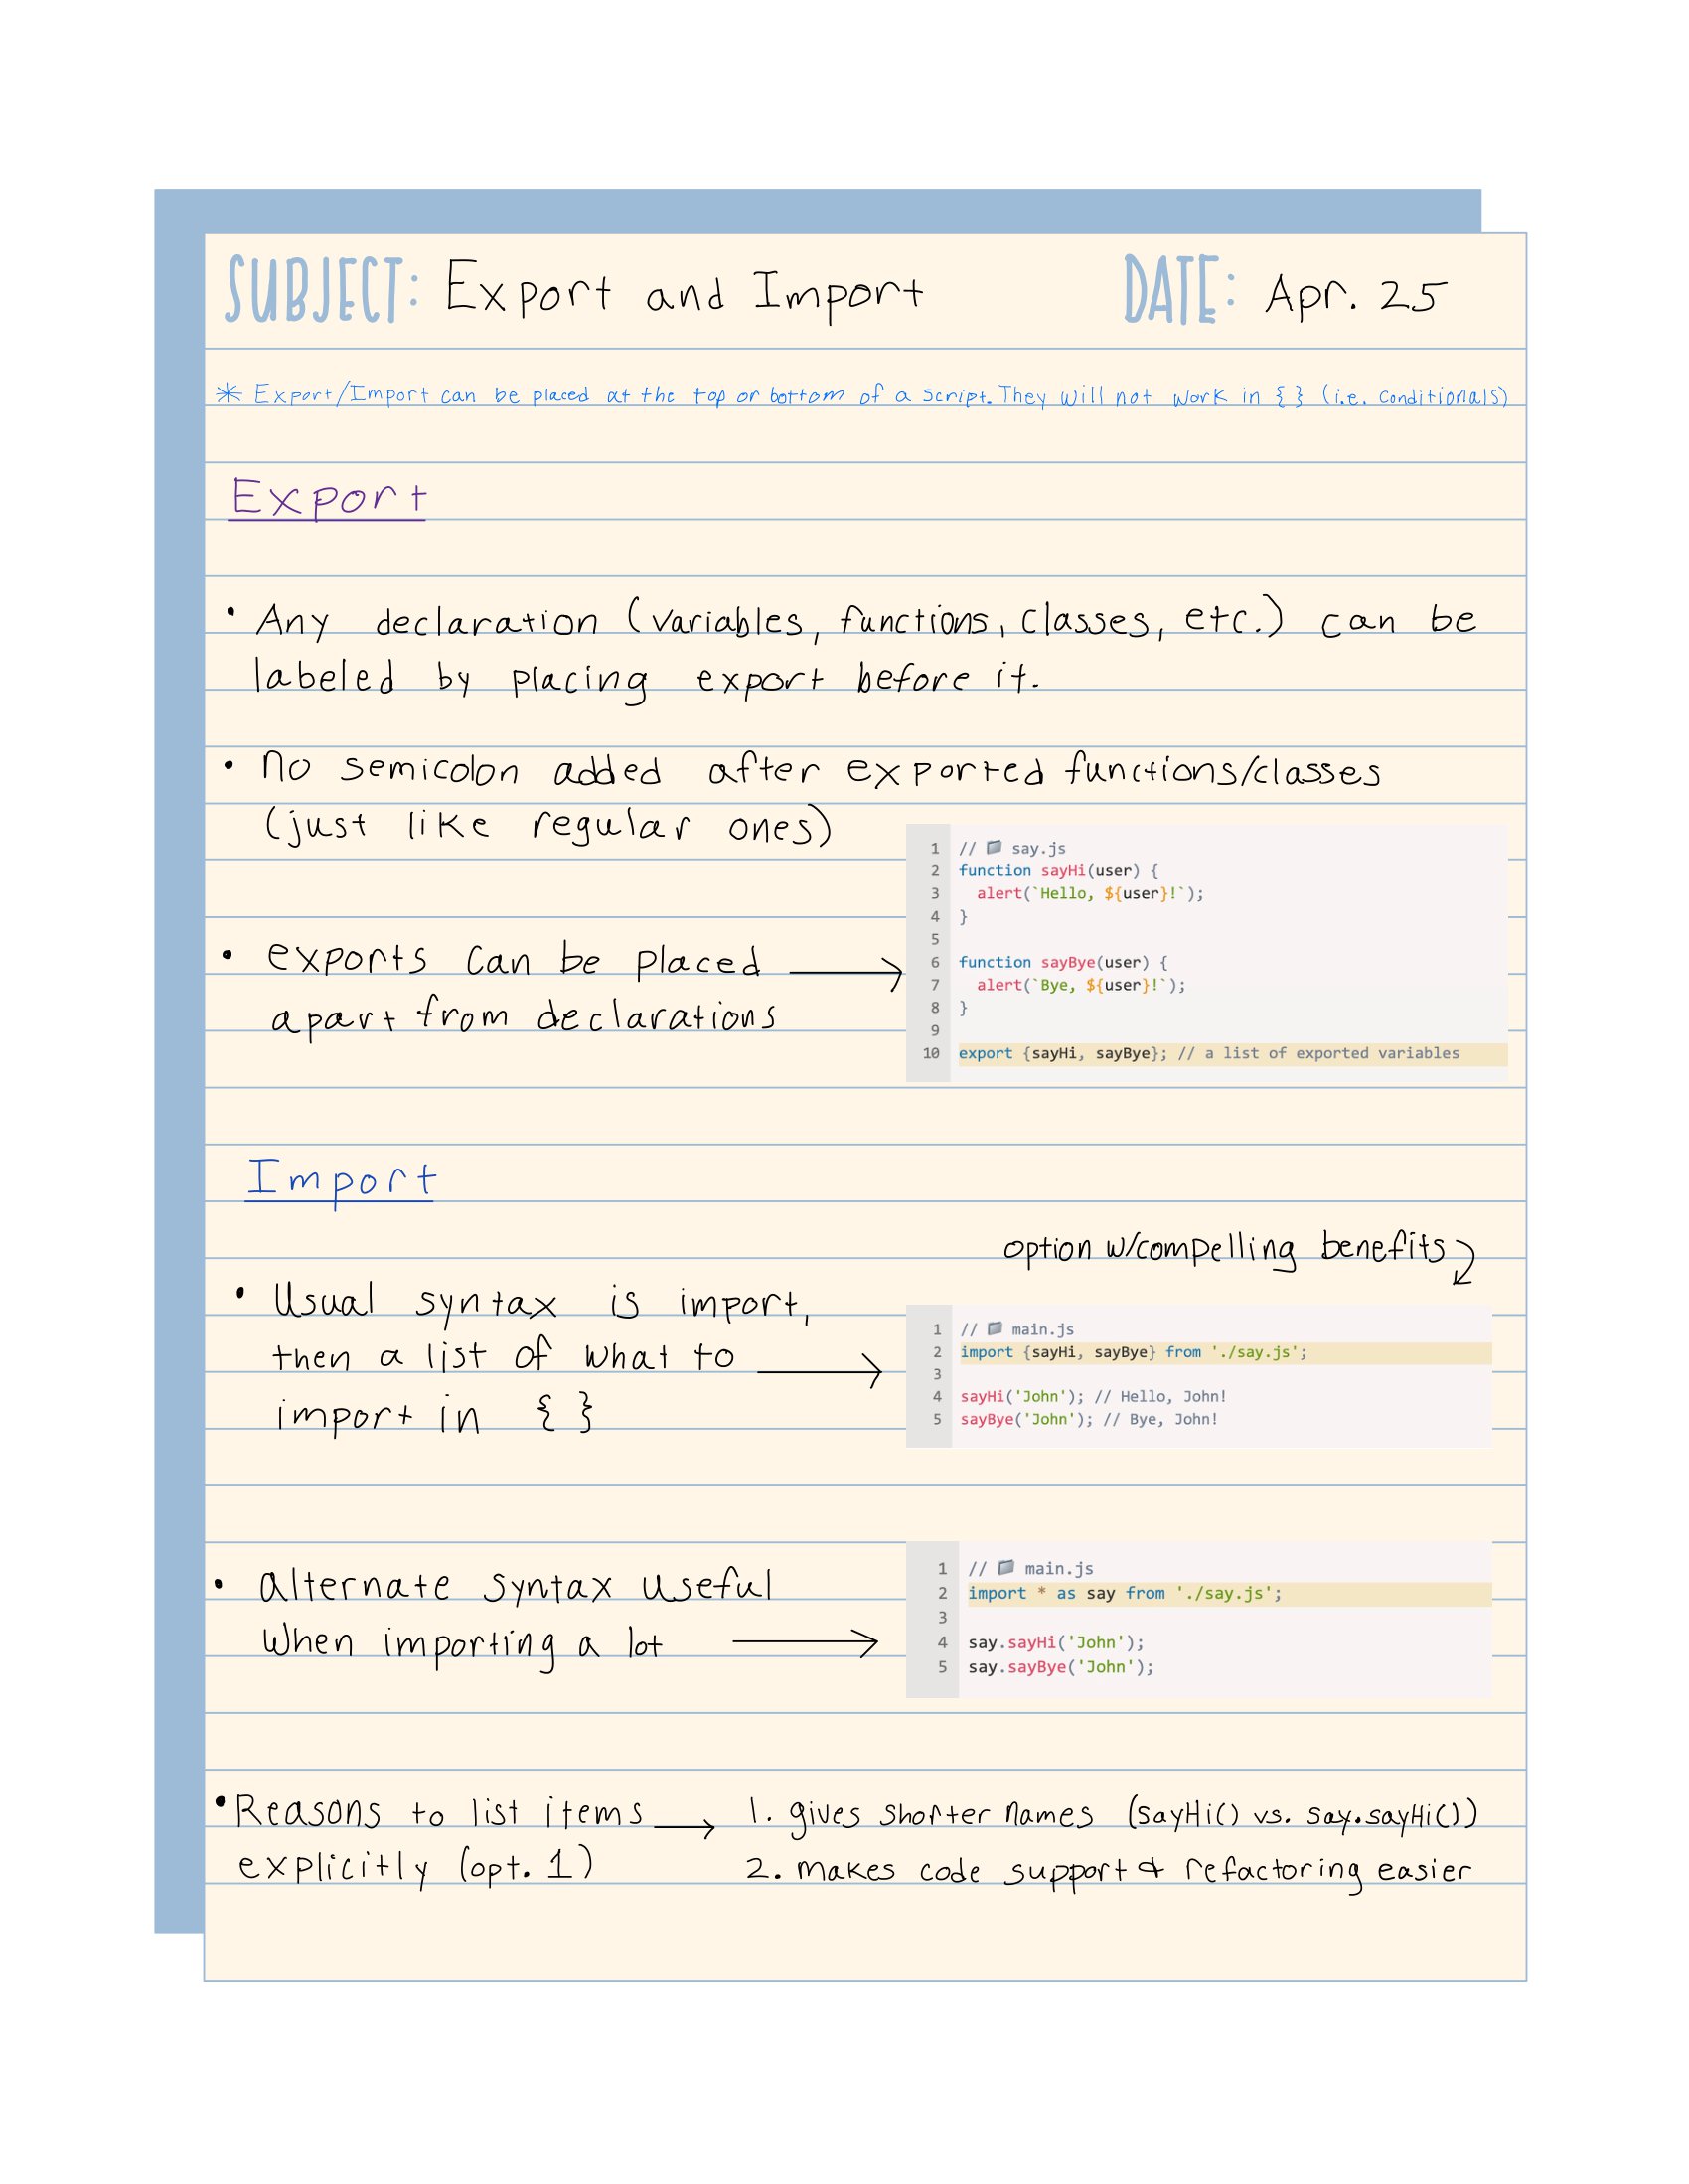 SUBJECT: Export and Import DATE: Apr. 25
* Export/Import can be placed at the top or bottom of a script. They will not work in { } (i.e. Conditionals)
Export
• Any declaration (variables, functions, classes, etc.) can be
labeled by placing export before it.
• no semicolon added after exported functions/classes
(just like regular ones)
• exports can be placed →
apart from declarations
1 // 📁 say.js
2 function sayHi(user) {
3   alert(`Hello, ${user}!`);
4 }
5
6 function sayBye(user) {
7   alert(`Bye, ${user}!`);
8 }
9
10 export {sayHi, sayBye}; // a list of exported variables
Import
option w/compelling benefits
• Usual syntax is import,
then a list of what to →
import in { }
1 // 📁 main.js
2 import {sayHi, sayBye} from './say.js';
3
4 sayHi('John'); // Hello, John!
5 sayBye('John'); // Bye, John!
• alternate syntax useful
When importing a lot →
1 // 📁 main.js
2 import * as say from './say.js';
3
4 say.sayHi('John');
5 say.sayBye('John');
• Reasons to list items →
explicitly (opt. 1)
1. gives shorter names (sayHi() vs. say.sayHi())
2. makes code support & refactoring easier